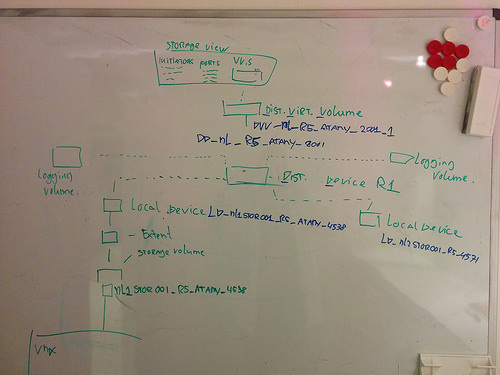 STORAGE VIEW
INITIATORS PORTS VV.S
Dist. VIRT. Volume
DVV-NL_R5_ATANY_2001_1
DD_NL_R5_ATANY_2001
Logging Volume.
logging volume.
DIST. Device R1
Local Device LD_NL1STOR001_R5_ATANY_4538
Local Device
LD_NL2STOR001_R5_4571
- Extent
storage volume
NL1STOR001_R5_ATANY_4538
VMX